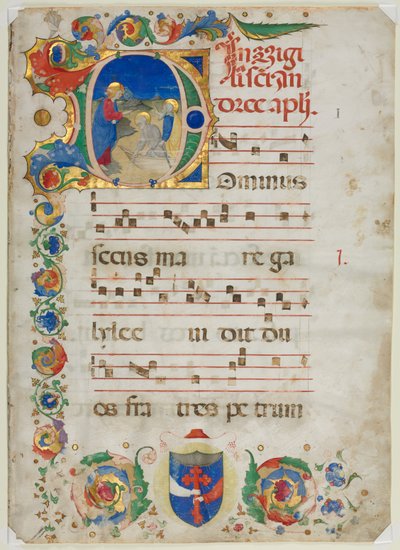 In vigi
li sci An
dree aplj.
I
Dominus
secus ma re ga
lylee ui dit du
os fra tres pe trum
1.